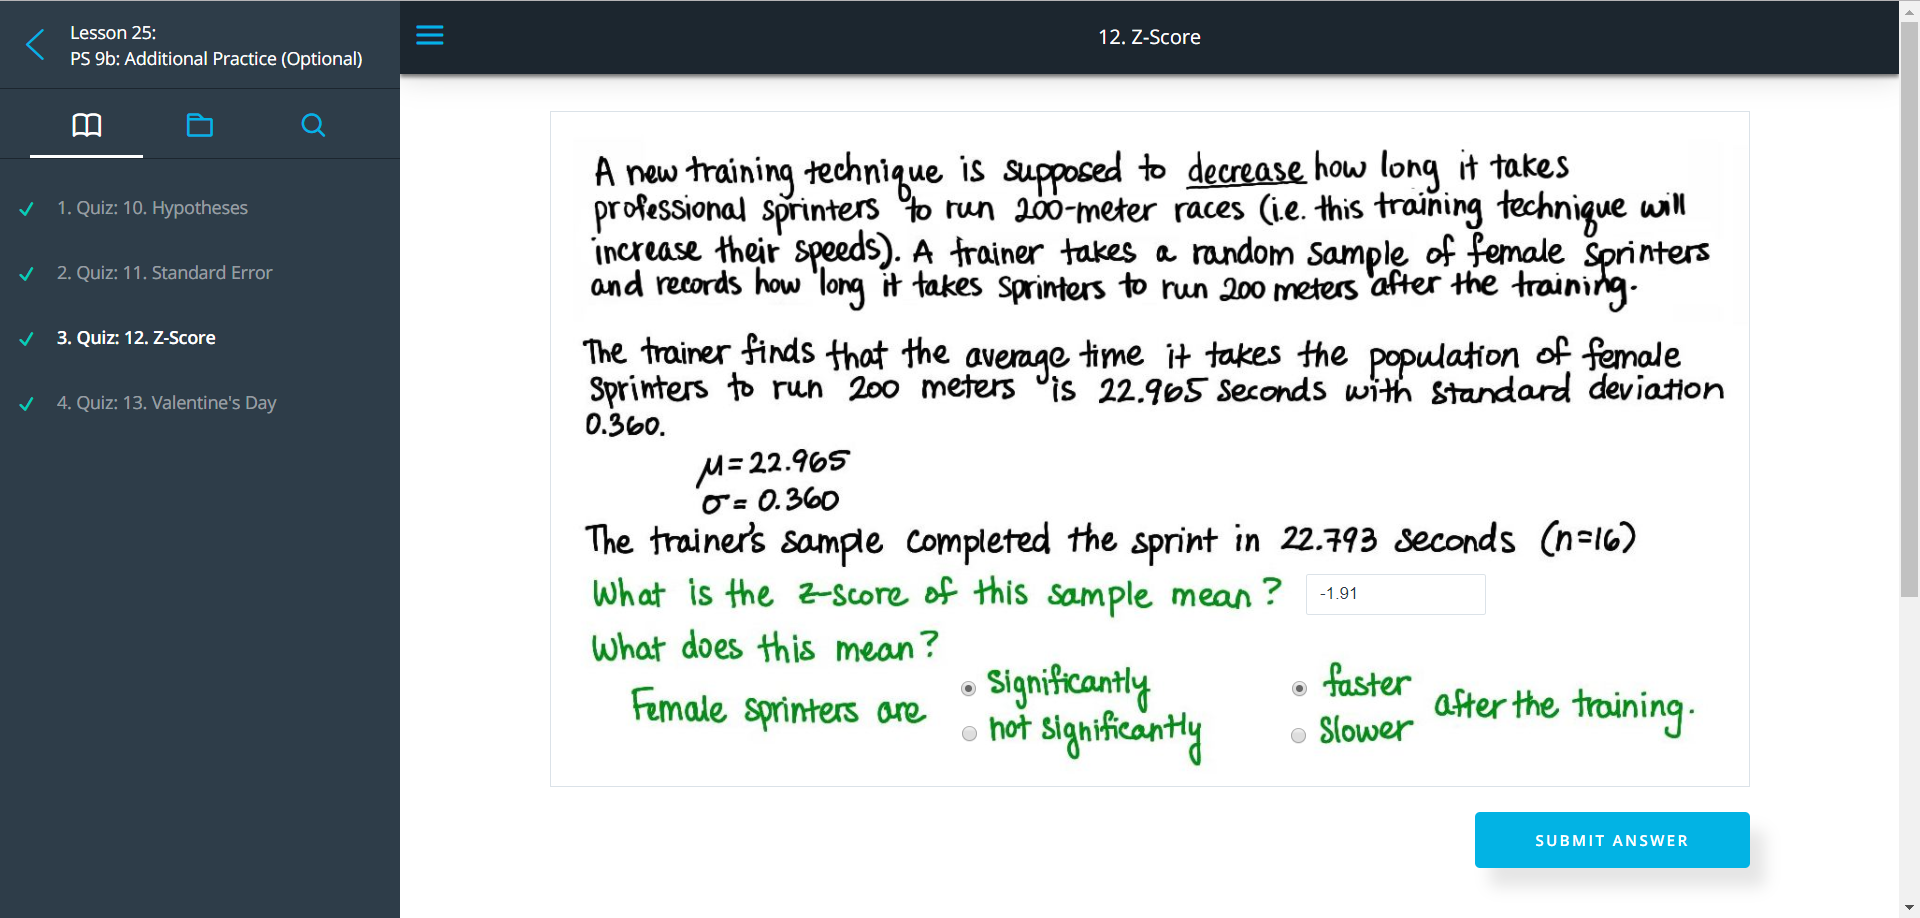 Lesson 25:
PS 9b: Additional Practice (Optional)
12. Z-Score
1. Quiz: 10. Hypotheses
2. Quiz: 11. Standard Error
3. Quiz: 12. Z-Score
4. Quiz: 13. Valentine's Day
A new training technique is supposed to decrease how long it takes
professional sprinters to run 200-meter races (i.e. this training technique will
increase their speeds). A trainer takes a random sample of female sprinters
and records how long it takes sprinters to run 200 meters after the training.
The trainer finds that the average time it takes the population of female
sprinters to run 200 meters is 22.965 seconds with standard deviation
0.360.
μ = 22.965
σ = 0.360
The trainer's sample completed the sprint in 22.793 seconds (n=16)
What is the z-score of this sample mean? -1.91
What does this mean?
Female sprinters are
significantly
not significantly
faster
slower
after the training.
SUBMIT ANSWER